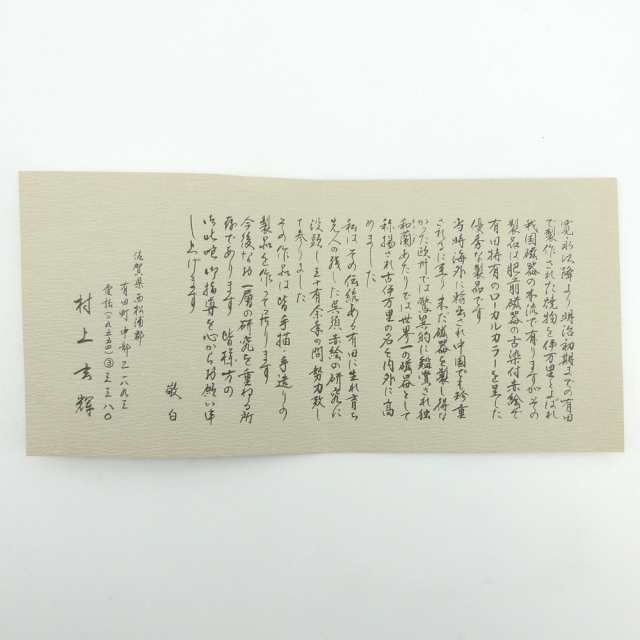 寛永以降より明治初期までの有田
で製作された焼物を伊万里とよばれ
我国磁器の本流で有りますがその
製品は肥前磁器の古染付赤絵で
有田特有のローカルカラーを呈した
優秀な製品です
当時海外に輸出され中国でも珍重
されるに至り未だ磁器を製し得な
かった欧州では驚異的に鑑賞され独
和蘭あたりでは世界一の磁器として
称揚され古伊万里の名を内外に高
めました
私はその伝統ある有田に生れ育ち
先人の残した呉須赤絵の研究に
没頭し三十有余年の間努力致し
て参りました
その作品は皆手描・手造りの
製品を作って居ります
今後なほ一層の研究を重ねる所
存であります 皆様方の
御叱咤御指導を心からお願い申
し上げます
敬白
佐賀県西松浦郡
有田町中部乙一八九三
電話(〇九五五四)③三三八〇
村上玄輝